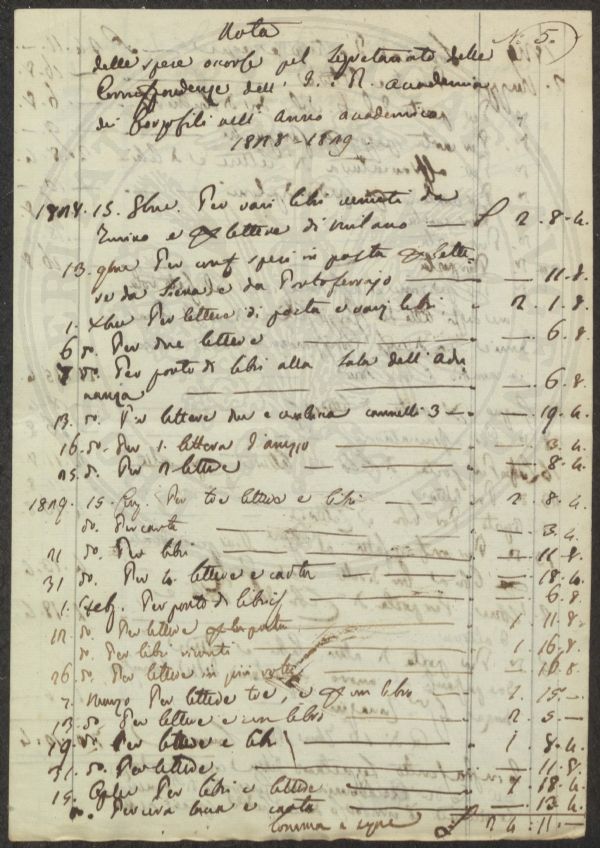 Nota
N. 5.
delle spese occorse pel Segretariato delle
Corrispondenze dell' I. e R. Accademia
dei Georgofili nell' anno accademico
1828 - 1829.
1828. 15. 8bre. Per vari libri venuti da
Torino e lettere di Milano — £ 2. 8. 4.
13. 9bre Per spesi in posta lette-
re da Siena e da Portoferrajo — 11. 8.
1. Xbre Per lettere di posta e varj libri 2. 1. 8.
6 do. Per due lettere — 6. 8.
7 do. Per porto di libri alla Sala dell' Adu
nanza — 6. 8.
13. do. Per lettere due e cannelli 3 — 19. 4.
16. do. Per 1. lettera d'Arezzo — 3. 4.
25. do. Per 2 lettere — 8. 4.
1829. 15. Per tre lettere e libri — 2 8. 4.
do. Per carta — 3. 4.
21 do. Per libri — 11. 8.
31 do. Per 4. lettere e carta — 18. 4.
1. Feb. Per porto di libri — 6. 8.
12 do. Per lettere posta 1. 11. 8.
do. Per libri venuti 1. 16. 8.
26 do. Per lettere in più volte — 16. 8.
7. Marzo Per lettere tre, e un libro — 1. 15. —
13 do. Per lettere e un libro — 2. 5. —
19 do. Per lettere e libri — 1. 8. 4.
31. do. Per lettere — 11. 8.
15. Aple Per libri e lettere — 7 18. 4.
do. Per cera e carta — 13. 4.
Somma e segue £ 24. 11. —